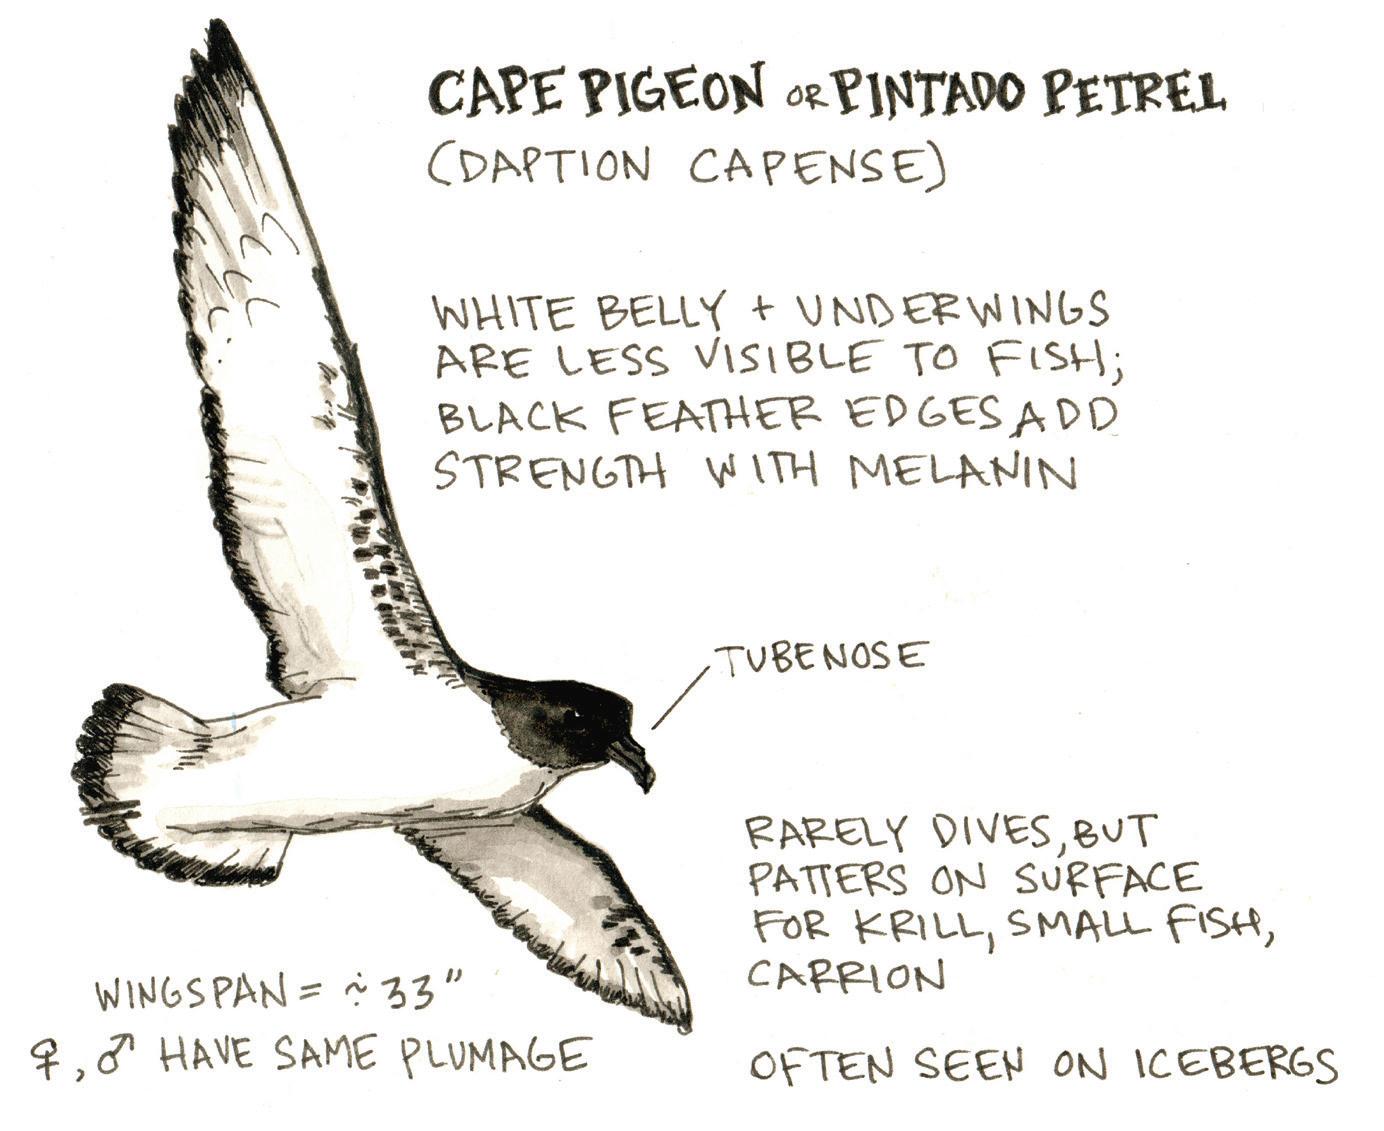 CAPE PIGEON OR PINTADO PETREL
(DAPTION CAPENSE)
WHITE BELLY + UNDERWINGS
ARE LESS VISIBLE TO FISH;
BLACK FEATHER EDGES ADD
STRENGTH WITH MELANIN
TUBENOSE
RARELY DIVES, BUT
PATTERS ON SURFACE
FOR KRILL, SMALL FISH,
CARRION
OFTEN SEEN ON ICEBERGS
WINGSPAN = ∻ 33"
♀, ♂ HAVE SAME PLUMAGE